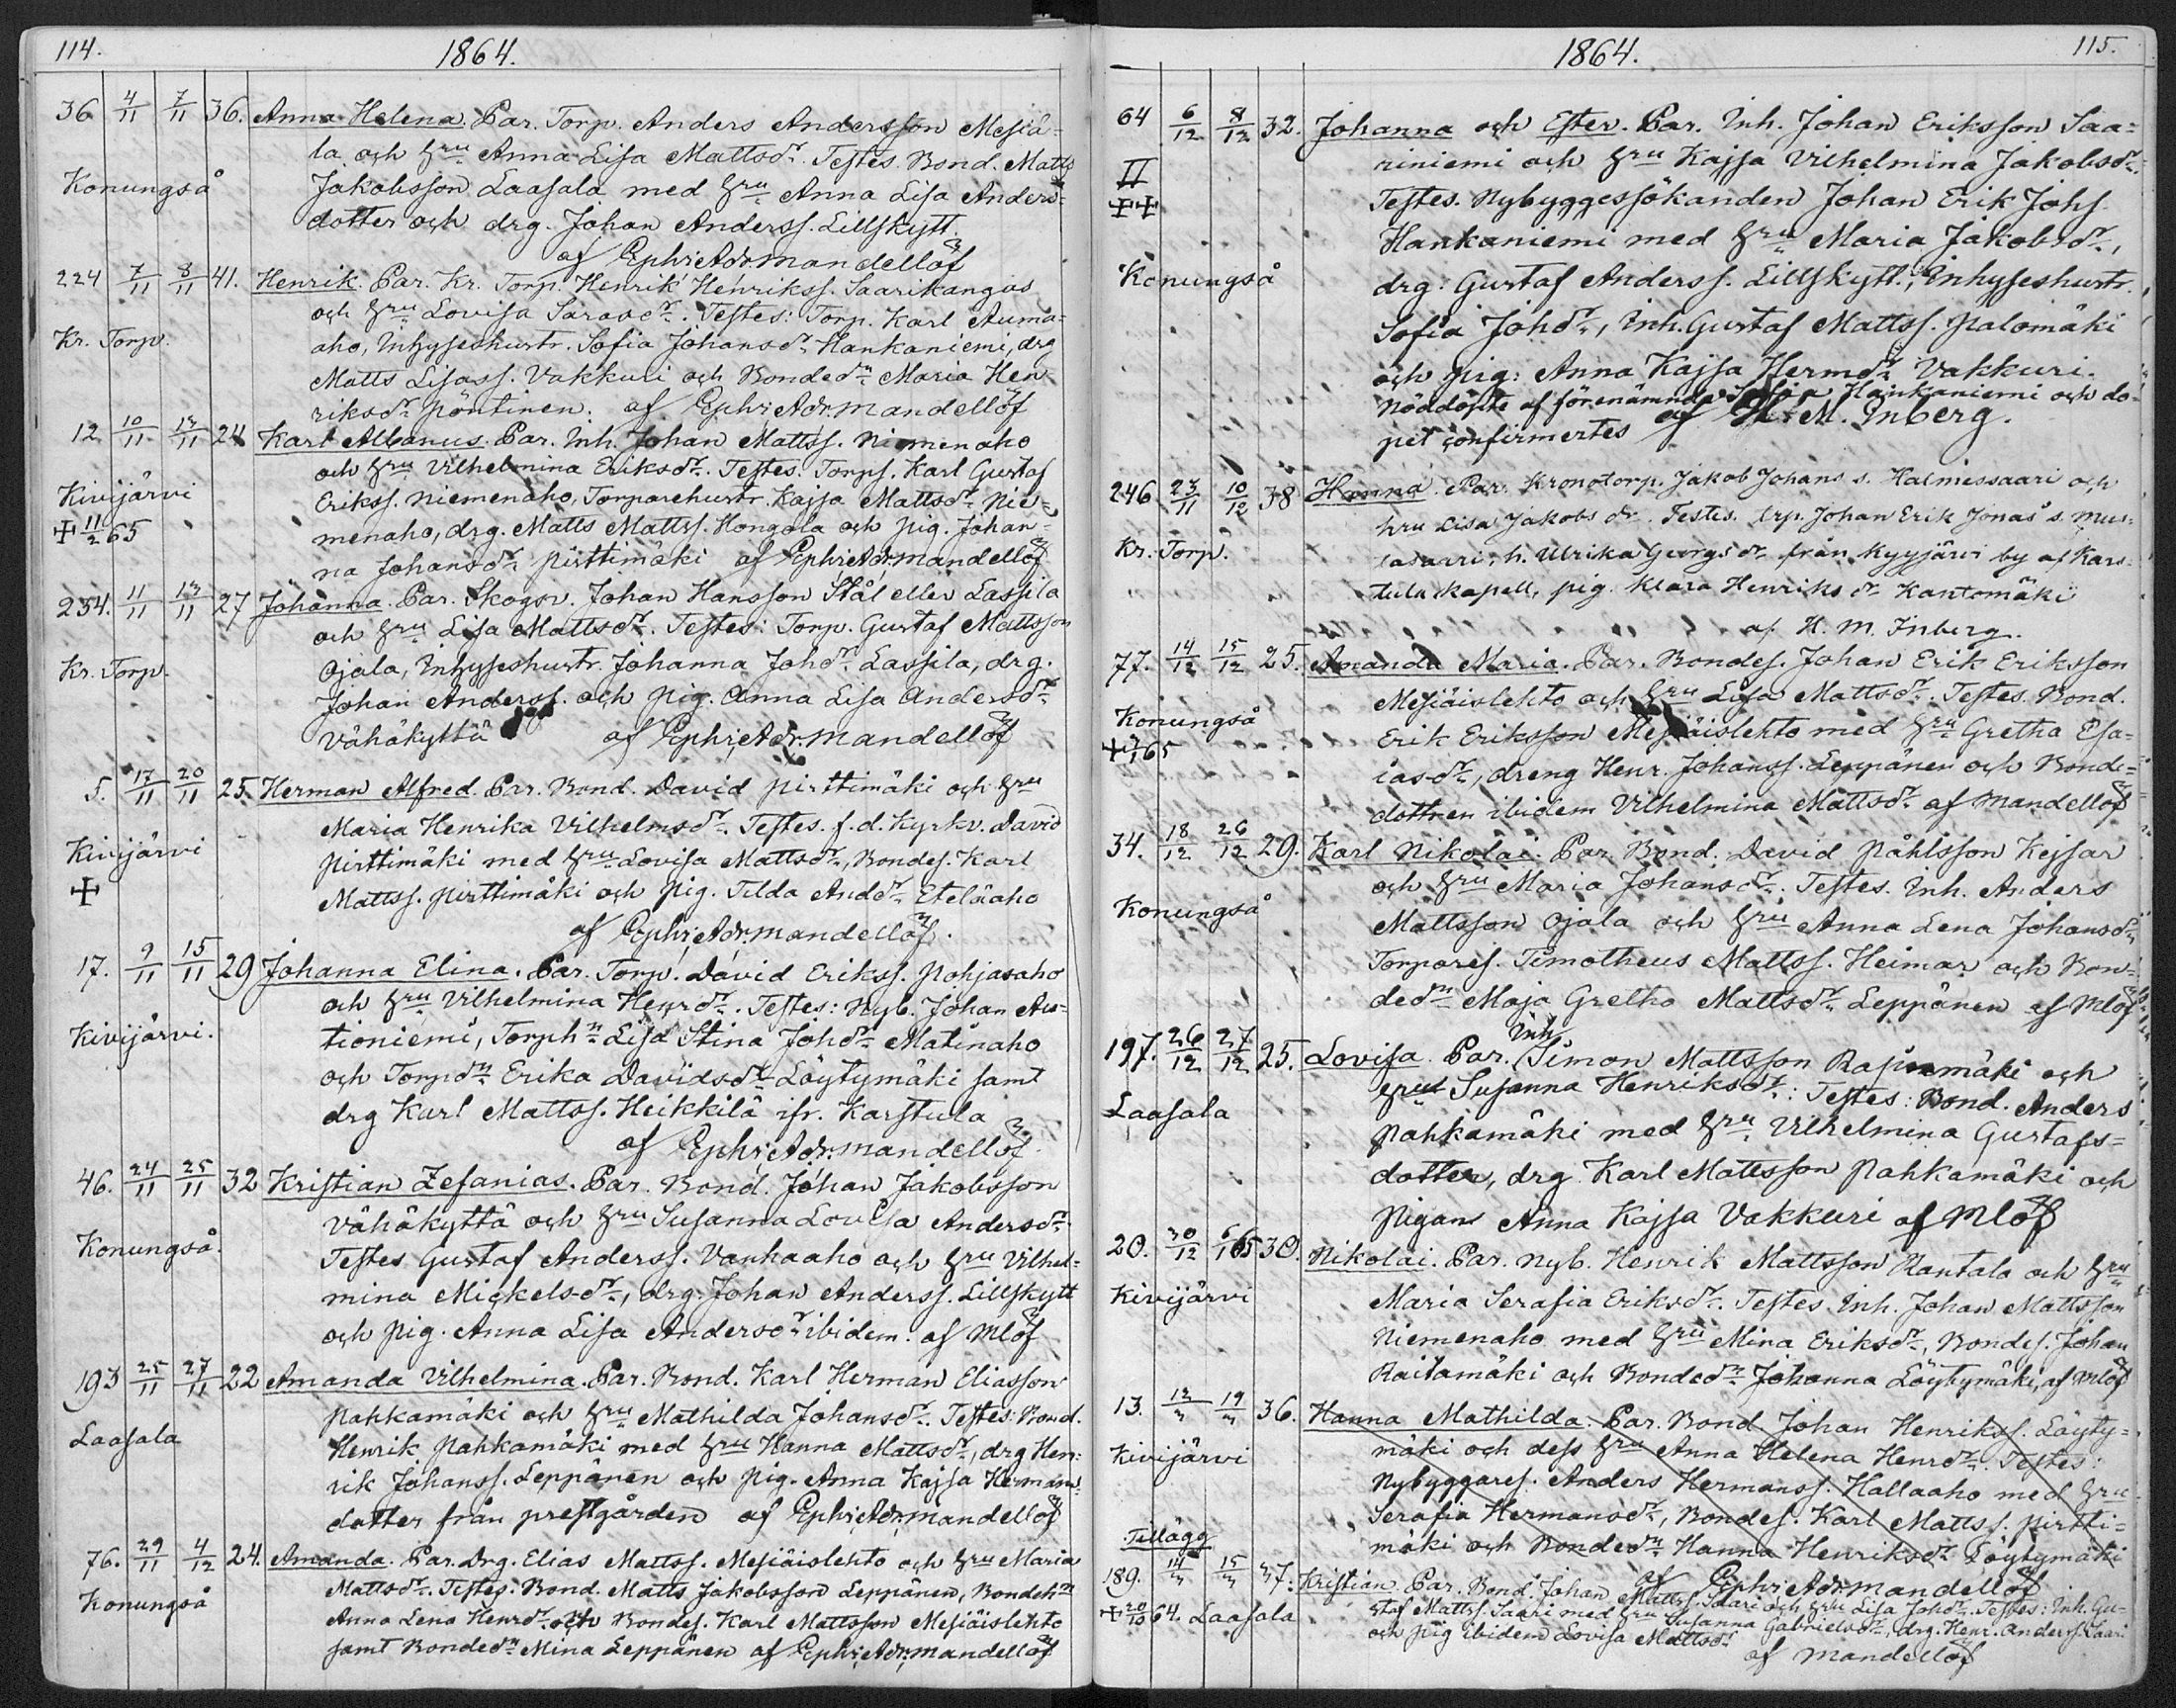 114.
1864.
36 4/11 7/11 36. Anna Helena. Par. Torp. Anders Andersson Mesiä=
la och hru Anna Lisa Mattsdr. Testes. Bond. Matts
Konungså Jakobsson Laasala med hru Anna Lisa Anders=
dotter och drg. Johan Anderss. Lillskytt.
af Ephr. Adr. Mandellöf
224 7/11 8/11 41. Henrik. Par. Kr. Torp. Henrik Henrikss. Saarikangas
och hru Lovisa Sarasdr. Testes: Torp. Karl Auma=
Kr. Torp. aho, Inhyseshustr. Sofia Johansdr Hankaniemi, drg
Matts Lisass. Vakkuri och Bondedr Maria Hen
riksdr Pöntinen. af Ephr Adr. Mandellöf
12 10/11 13/11 24 Karl Albanus. Par. Inh. Johan Mattss. Niemenaho
och hru Vilhelmina Eriksdr. Testes. Torps. Karl Gustaf
Kivijärvi Erikss. Niemenaho, Torparehustr. Kajsa Mattsdr Nie=
+ 11/2 65 menaho, drg. Matts Mattss. Hongola och pig. Johan=
na Johansdr Pirttimäki af Ephr Adr. Mandellöf
254. 11/11 13/11 27 Johanna. Par. Skogsv. Johan Hansson Stål eller Lassila
och hru Lisa Mattsdr. Testes: Torp. Gustaf Mattsson
Kr. Torp. Ojala, Inhyseshustr. Johanna Johdr. Lassila, drg.
Johan Anderss. och pig. Anna Lisa Andersdr
Vähäkyttä af Ephr. Adr. Mandellöf
5. 17/11 20/11 25. Herman Alfred. Par. Bond. David Pirttimäki och hru
Maria Henrika Vilhelmsdr. Testes. f. d. Kyrkv. David
Kivijärvi Pirttimäki med hru Lovisa Mattsdr, Bondes. Karl
+ Mattss. Pirttimäki och pig. Tilda Anddr Eteläaho
af Ephr. Adr. Mandellöf.
17. 9/11 15/11 29 Johanna Elina. Par. Torp. David Erikss. Pohjasaho
och hru Vilhelmina Henrdr. Testes: Nyb. Johan Au=
Kivijärvi. tioniemi, Torphn Lisa Stina Johdr Matinaho
och Torpdn Erika Davidsdr Löytymäki samt
drg Karl Mattss. Heikkilä ifr. Karstula
af Ephr Adr. Mandellöf.
46. 24/11 25/11 32 Kristian Zefanias. Par. Bond. Johan Jakobsson
Vähäkyttä och hru Susanna Lovisa Andersdr
Konungså. Testes Gustaf Anderss. Vanhaaho och hru Vilhel=
mina Mickelsdr, drg. Johan Anderss. Lillskytt
och pig. Anna Lisa Andersdr ibidem. af Mlöf
193 25/11 27/11 22 Amanda Vilhelmina. Par. Bond. Karl Herman Eliasson
Pahkamäki och hru Mathilda Johansdr. Testes: Bond.
Laasala Henrik Pahkamäki med hru Hanna Mattsdr, drg Hen=
rik Johanss. Leppänen och pig. Anna Kajsa Hermans=
dotter från prestgården af Ephr Adr. Mandellöf
76. 29/11 4/12 24. Amanda. Par. Drg. Elias Mattss. Mesiäislehto och hru Maria
Mattsdr. Testes: Bond. Matts Jakobsson Leppänen, Bondehn
Konungså Anna Lena Henrdr och Bondes. Karl Mattsson Mesiäislehto
samt Bondedn Mina Leppänen af Ephr. Adr. Mandellöf
1864.
115.
64 6/12 8/12 32. Johanna och Ester. Par. Inh. Johan Eriksson Saa=
II riniemi och hru Kajsa Vilhelmina Jakobsdr.
++ Testes. Nybyggessökanden Johan Erik Johs.
Hankaniemi med hru Maria Jakobsdr,
Konungså drg: Gustaf Anderss. Lillskytt., Inhyseshustr.
Sofia Johdr, Inh. Gustaf Mattss. Palomäki
och pig: Anna Kajsa Hermdr Vakkuri.
Nöddöpte af förenämnda Sofia Hankaniemi och do=
pet confirmertes af H. M. Inberg.
246 23/11 10/12 38 Hanna. Par. Kronotorp. Jakob Johans s. Halmessaari och
hru Lisa Jakobs dr. Testes. Trp. Johan Erik Jonas s. Mus=
Kr. Torp. tasaari, h. Ulrika Georgs dr från Kyyjärvi by af Kars=
tula kapell, pig. Klara Henriks dr Kantomäki
af H. M. Inberg.
77. 14/12 15/12 25. Amanda Maria. Par. Bondes. Johan Erik Eriksson
Mesiäislehto och hru Lisa Mattsdr. Testes. Bond.
Konungså Erik Eriksson Mesiäislehto med hru Gretha Esa=
iasdr, dreng Henr. Johanss. Leppänen och Bonde=
dottren ibidem Vilhelmina Mattsdr af Mandellöf
34. 18/12 26/12 29. Karl Nikolai. Par. Bond. David Påhlsson Kejsar
och hru Maria Johansdr. Testes. Inh. Anders
Konungså Mattsson Ojala och hru Anna Lena Johansdr
Torpares. Timotheus Mattss. Heimar och Bon=
dedn Maja Gretha Mattsdr Leppänen af Mlöf
197. 26/12 27/12 25. Lovisa. Par. Inh. Simon Mattsson Rasinmäki och
hru Susanna Henriksdr: Testes: Bond. Anders
Laasala Pahkamäki med hru Vilhelmina Gustafs=
dotter, drg Karl Mattsson Pahkamäki och
Pigan Anna Kajsa Vakkuri af Mlöf
20. 30/12 6/1 65 30. Nikolai. Par. Nyb. Henrik Mattsson Rantala och hru
Kivijärvi Maria Serafia Eriksdr. Testes. Inh. Johan Mattsson
Niemenaho med hru Mina Eriksdr, Bondes. Johan
Raitamäki och Bondedn Johanna Löytymäki, af Mlöf
13. 12/3 19/3 36. Hanna Mathilda. Par. Bond Johan Henrikss. Löyty=
Kivijärvi mäki och dess hru Anna Helena Henrdr. Testes:
Nybyggares. Anders Hermanss. Hallaaho med hru
Serafia Hermansdr, Bondes. Karl Mattss. Pirtti=
mäki och Bondedn Hanna Henriksdr Löytymäki
af Ephr Adr. Mandellöf
Tillägg
189. 14/3 15/3 37. Kristian. Par. Bond. Johan Mattss. Saari och hru Lisa Johdr. Testes: Inh. Gu=
+ 20/10 64. Laasala staf Mattss. Saari med hru Susanna Gabrielsdr, drg. Henr. Anderss. Saari
och pig ibidem Lovisa Mattsdr
af Mandellöf